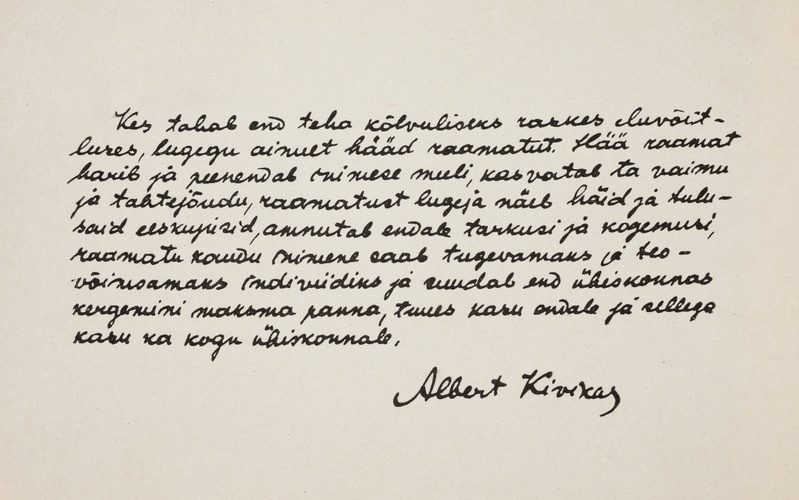 Kes tahab end teha kõlvuliseks raskes eluvõit-
luses, lugegu ainult hääd raamatut. Hää raamat
harib ja peenendab inimese meeli, kasvatab ta vaimu
ja tahtejõudu, raamatust lugeja näeb häid ja tulu-
said eeskujusid, ammutab endale tarkusi ja kogemusi,
raamatu kaudu inimene saab tugevamaks ja teo-
võimsamaks indiviidiks ja suudab end ühiskonnas
kergemini maksma panna, tuues kasu endale ja sellega
kasu ka kogu ühiskonnale.
Albert Kivikas